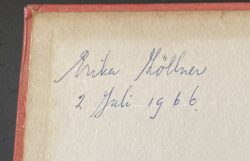 Erika Köllner
2 Juli 1966.